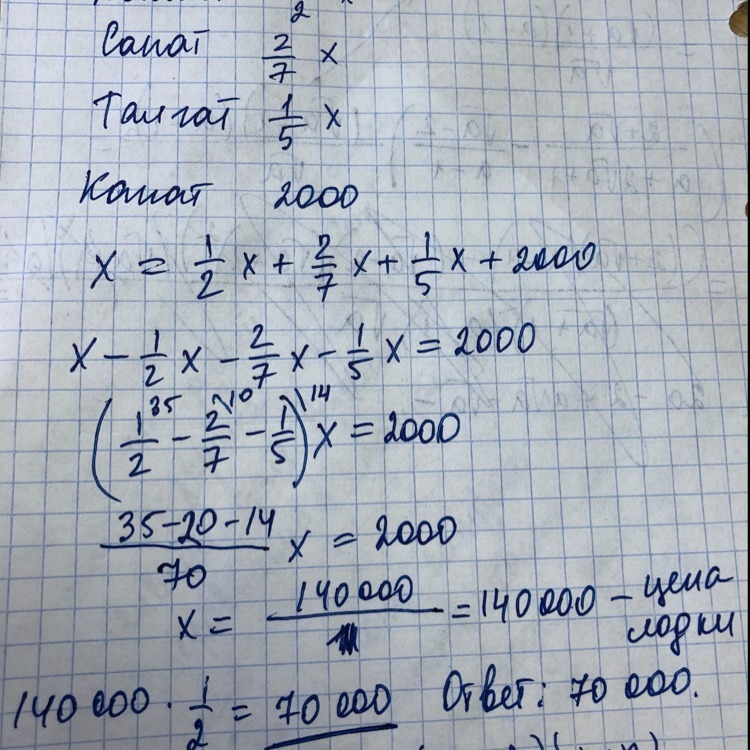 2
Санат 2/7 x
Талгат 1/5 x
Канат 2000
x = 1/2 x + 2/7 x + 1/5 x + 2000
x - 1/2 x - 2/7 x - 1/5 x = 2000
(1/2 \35 - 2/7 \10 - 1/5 \14) x = 2000
35-20-14/70 x = 2000
x = 140 000/1 = 140 000 - цена лодки
140 000 · 1/2 = 70 000 Ответ: 70 000.